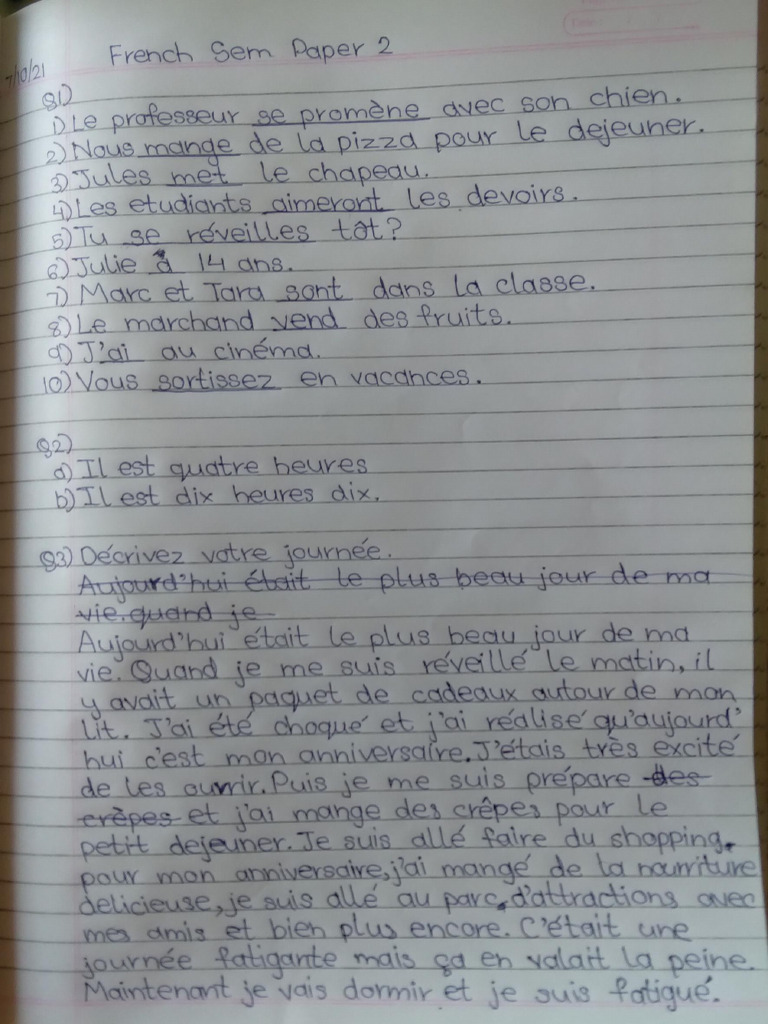 French Sem Paper 2
7/10/21
Q1)
1) Le professeur se promène avec son chien.
2) Nous mange de la pizza pour le dejeuner.
3) Jules met le chapeau.
4) Les etudiants aimeront les devoirs.
5) Tu se réveilles tôt?
6) Julie à 14 ans.
7) Marc et Tara sont dans la classe.
8) Le marchand vend des fruits.
9) J'ai au cinéma.
10) Vous sortissez en vacances.
Q2)
a) Il est quatre heures
b) Il est dix heures dix.
Q3) Décrivez votre journée.
Aujourd'hui était le plus beau jour de ma
vie. quand je
Aujourd'hui était le plus beau jour de ma
vie. Quand je me suis réveillé le matin, il
y avait un paquet de cadeaux autour de mon
lit. J'ai été choqué et j'ai réalisé qu'aujourd'
hui c'est mon anniversaire. J'étais très excité
de les ouvrir. Puis je me suis prépare des
crêpes et j'ai mange des crêpes pour le
petit dejeuner. Je suis allé faire du shopping.
pour mon anniversaire, j'ai mangé de la nourriture
delicieuse, je suis allé au parc d'attractions avec
mes amis et bien plus encore. C'était une
journée fatigante mais ça en valait la peine.
Maintenant je vais dormir et je suis fatigué.